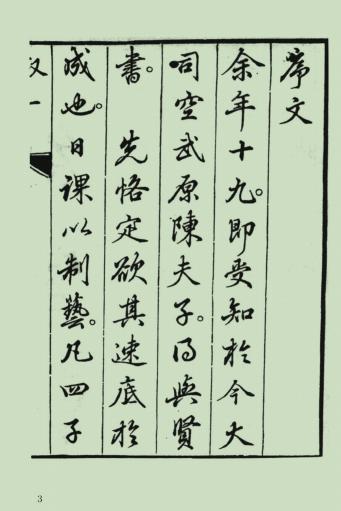 序文
余年十九。即受知於今大
司空武原陳夫子。得與賢
書。 先恪定欲其速底於
成也。日課以制藝。凡四子
3